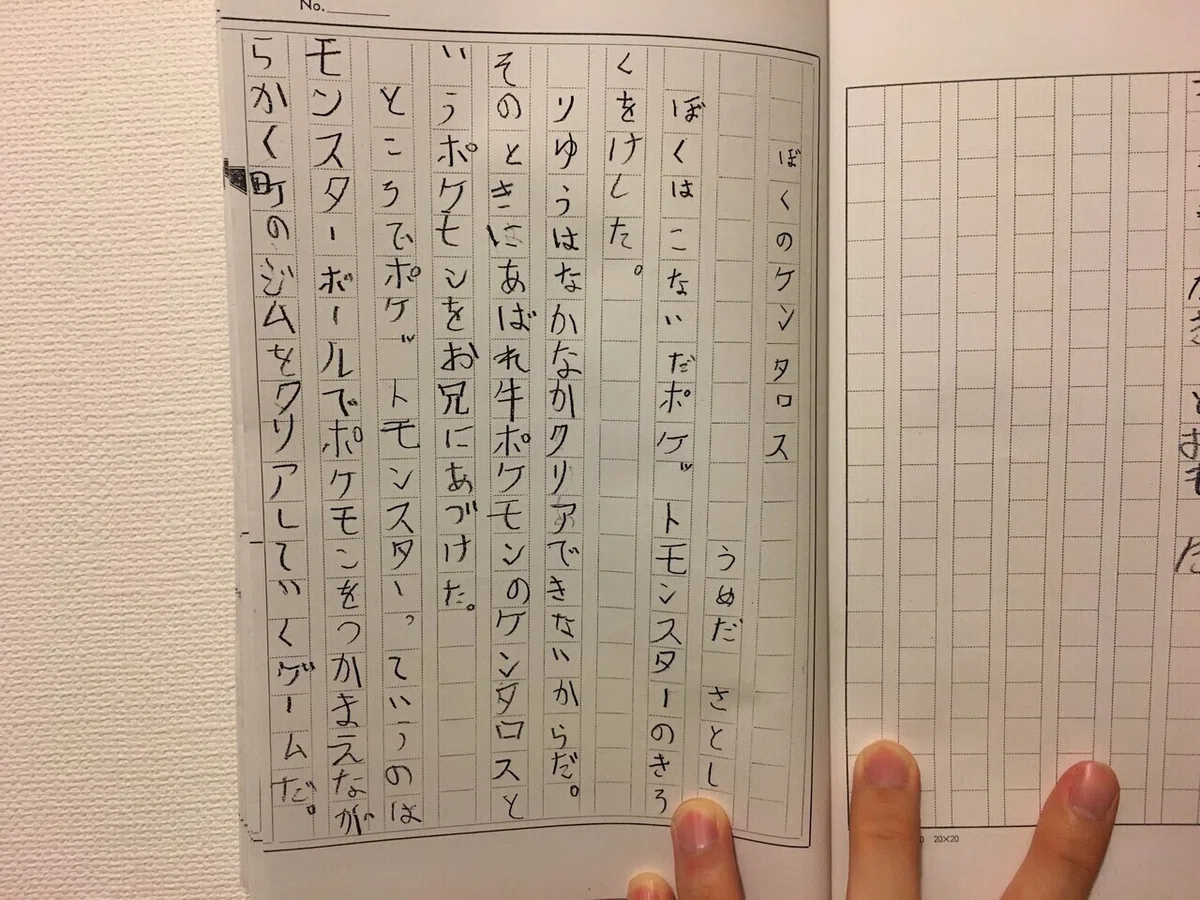 No.
ぼくのケンタロス
うめだ さとし
ぼくはこないだポケットモンスターのきろ
くをけした。
りゆうはなかなかクリアできないからだ。
そのときにあばれ牛ポケモンのケンタロスと
いうポケモンをお兄にあづけた。
ところでポケットモンスターっていうのは
モンスターボールでポケモンをつかまえなが
らかく町のジムをクリアしていくゲームだ。
20×20